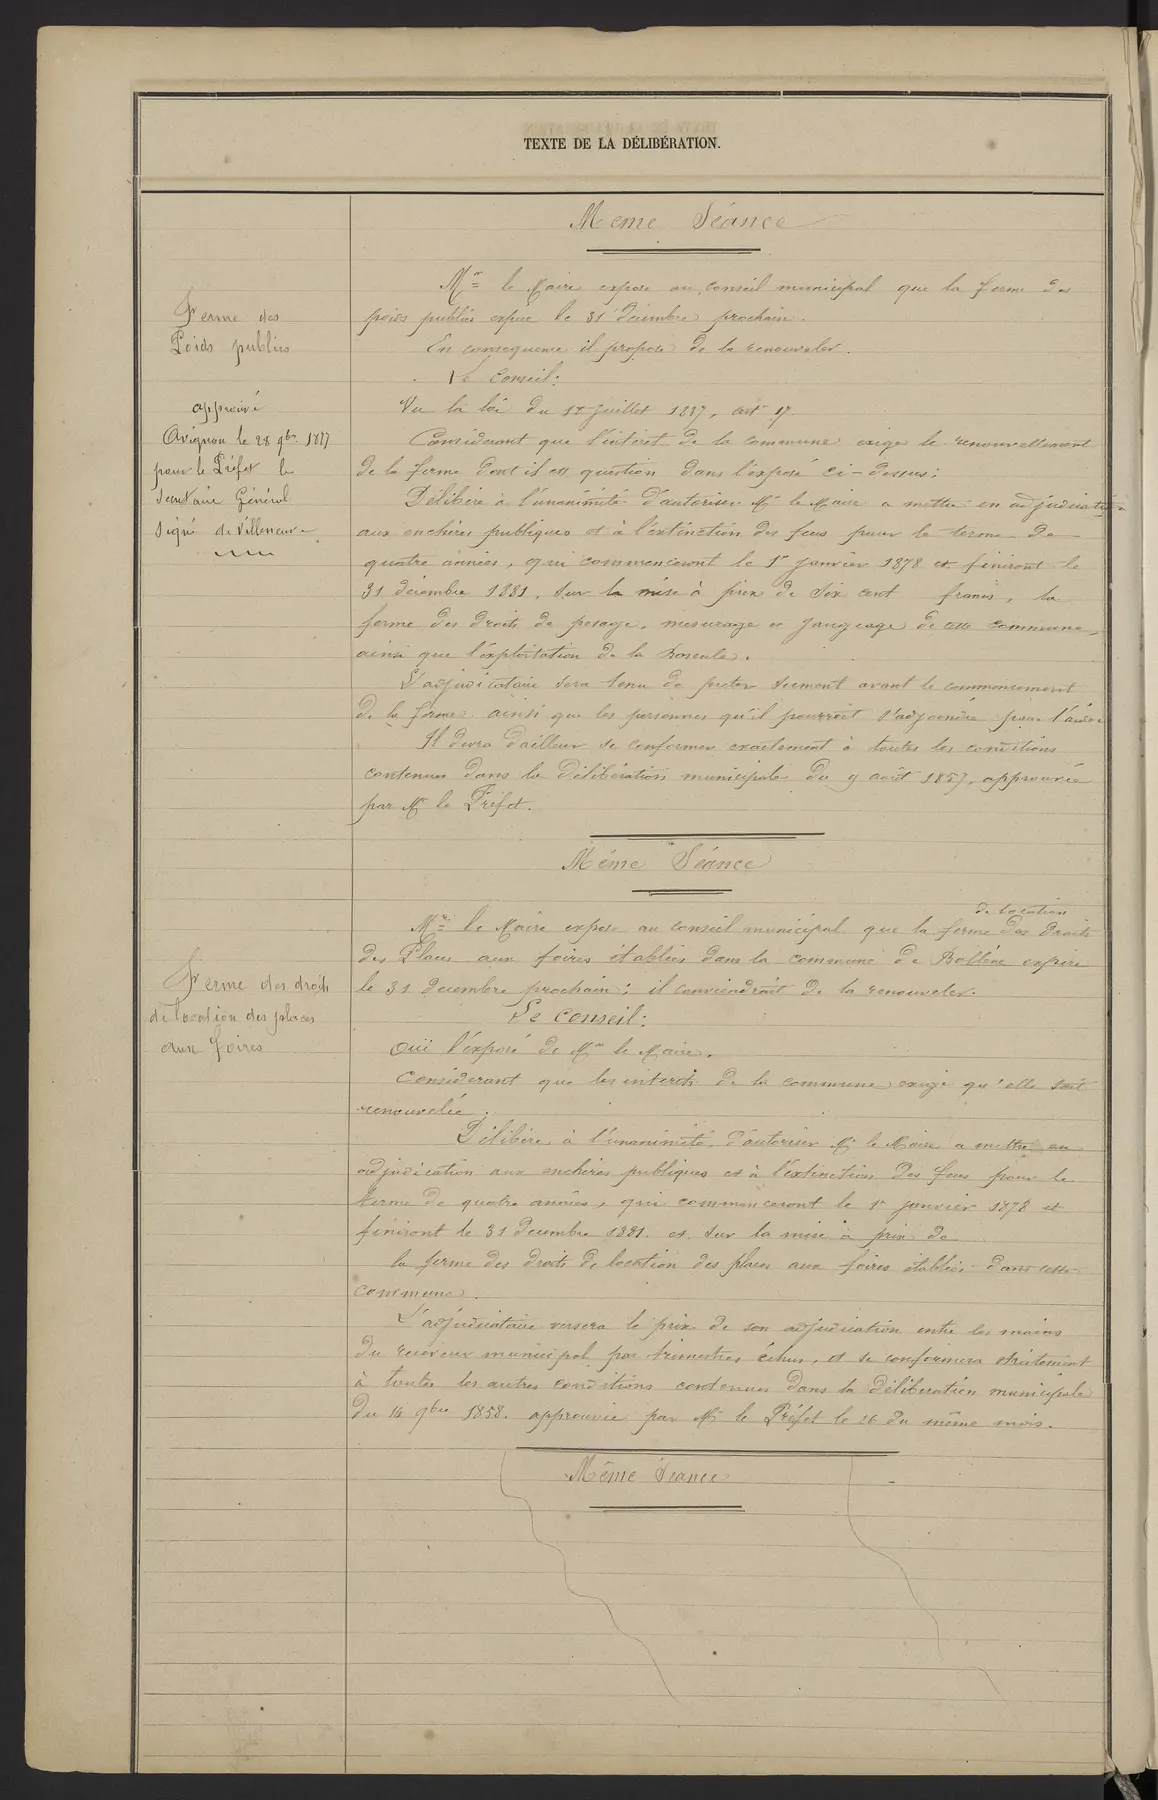 TEXTE DE LA DÉLIBÉRATION.
Meme Séance
Mr le Maire expose au conseil municipal que la ferme des
poids publics expire le 31 décembre prochain.
En consequence il propose de la renouveler.
Le Conseil:
Vu la loi du 18 juillet 1837, art 17.
Considerant que l'intéret de la commune exige le renouvellement
de la ferme dont il est question dans l'exposé ci-dessus:
Délibère à l'unanimité d'autoriser Mr le Maire a mettre en adjudication
aux enchères publiques et à l'extinction des feux pour le terme de
quatre années, qui commenceront le 1er janvier 1878 et finiront le
31 décembre 1881, sur la mise à prix de Six cent francs, la
ferme des droits de pesage, mesurage et jaugeage de cette commune,
ainsi que l'exploitation de la bascule.
L'adjudicataire sera tenu de preter serment avant le commencement
de la ferme ainsi que les personnes qu'il pourrait s'adjoindre pour l'aider
Il devra d'ailleur se conformer exactement à toutes les conditions
contenues dans la délibération municipale du 9 août 1857, approuvée
par Mr le Préfet.
Ferme des
Poids publics
approuvé
Avignon le 28 9bre 1877
pour le Préfet le
Secrétaire Général
Signé de Villeneuve
Même Séance
de location
Mr le Maire expose au conseil municipal que la ferme des droits
des Places aux foires établies dans la commune de Bollène expire
le 31 decembre prochain; il conviendrait de la renouveler.
Le Conseil:
Ouï l'exposé de Mr le Maire.
Considerant que les interets de la commune exige qu'elle soit
renouvelée.
Délibère à l'unanimité d'autoriser Mr le Maire a mettre en
adjudication aux enchères publiques et à l'extinction des feux pour le
terme de quatre années, qui commenceront le 1er janvier 1878 et
finiront le 31 decembre 1881. et sur la mise à prix de
la ferme des droits de location des places aux foires établies dans cette
commune.
L'adjudicataire versera le prix de son adjudication entre les mains
du receveur municipal par trimestres échus, et se conformera strictement
à toutes les autres conditions contenues dans la délibération municipale
du 14 9bre 1858. approuvée par Mr le Préfet le 26 du même mois.
Ferme des droits
de location des places
aux foires
Même Séance